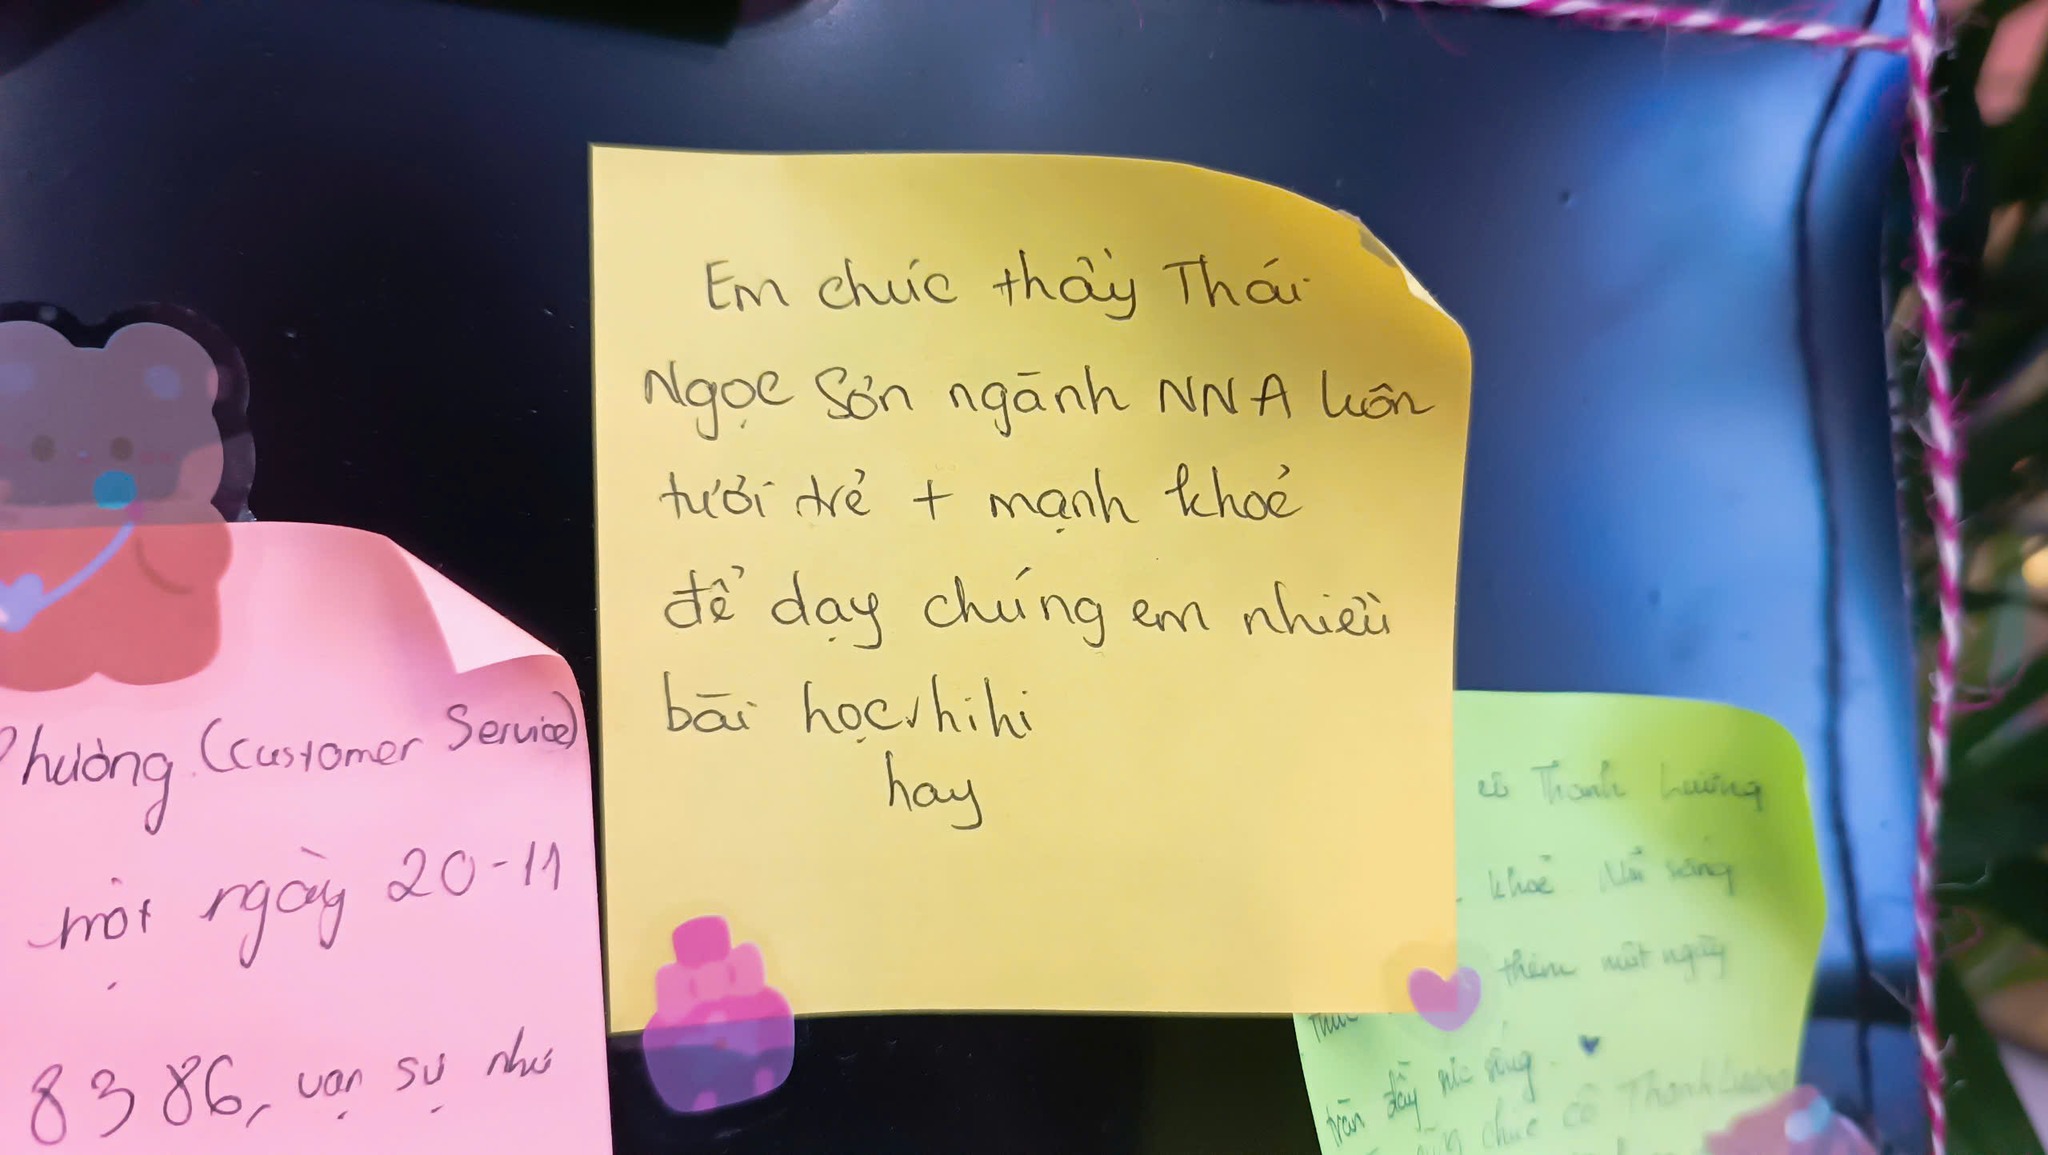 Em chúc thầy Thái
Ngọc Sơn ngành NNA luôn
tươi trẻ + mạnh khoẻ
để dạy chúng em nhiều
bài học✓hihi
hay
Phương (Customer Service)
một ngày 20-11
8386, vạn sự như
cô Thanh Lương
khoẻ
thêm một ngày
tràn đầy sức sống.
chúc cô Thanh Lương